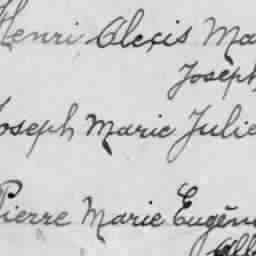 Henri Alexis Ma
Joseph
Joseph Marie Julie
Pierre Marie Eugèn